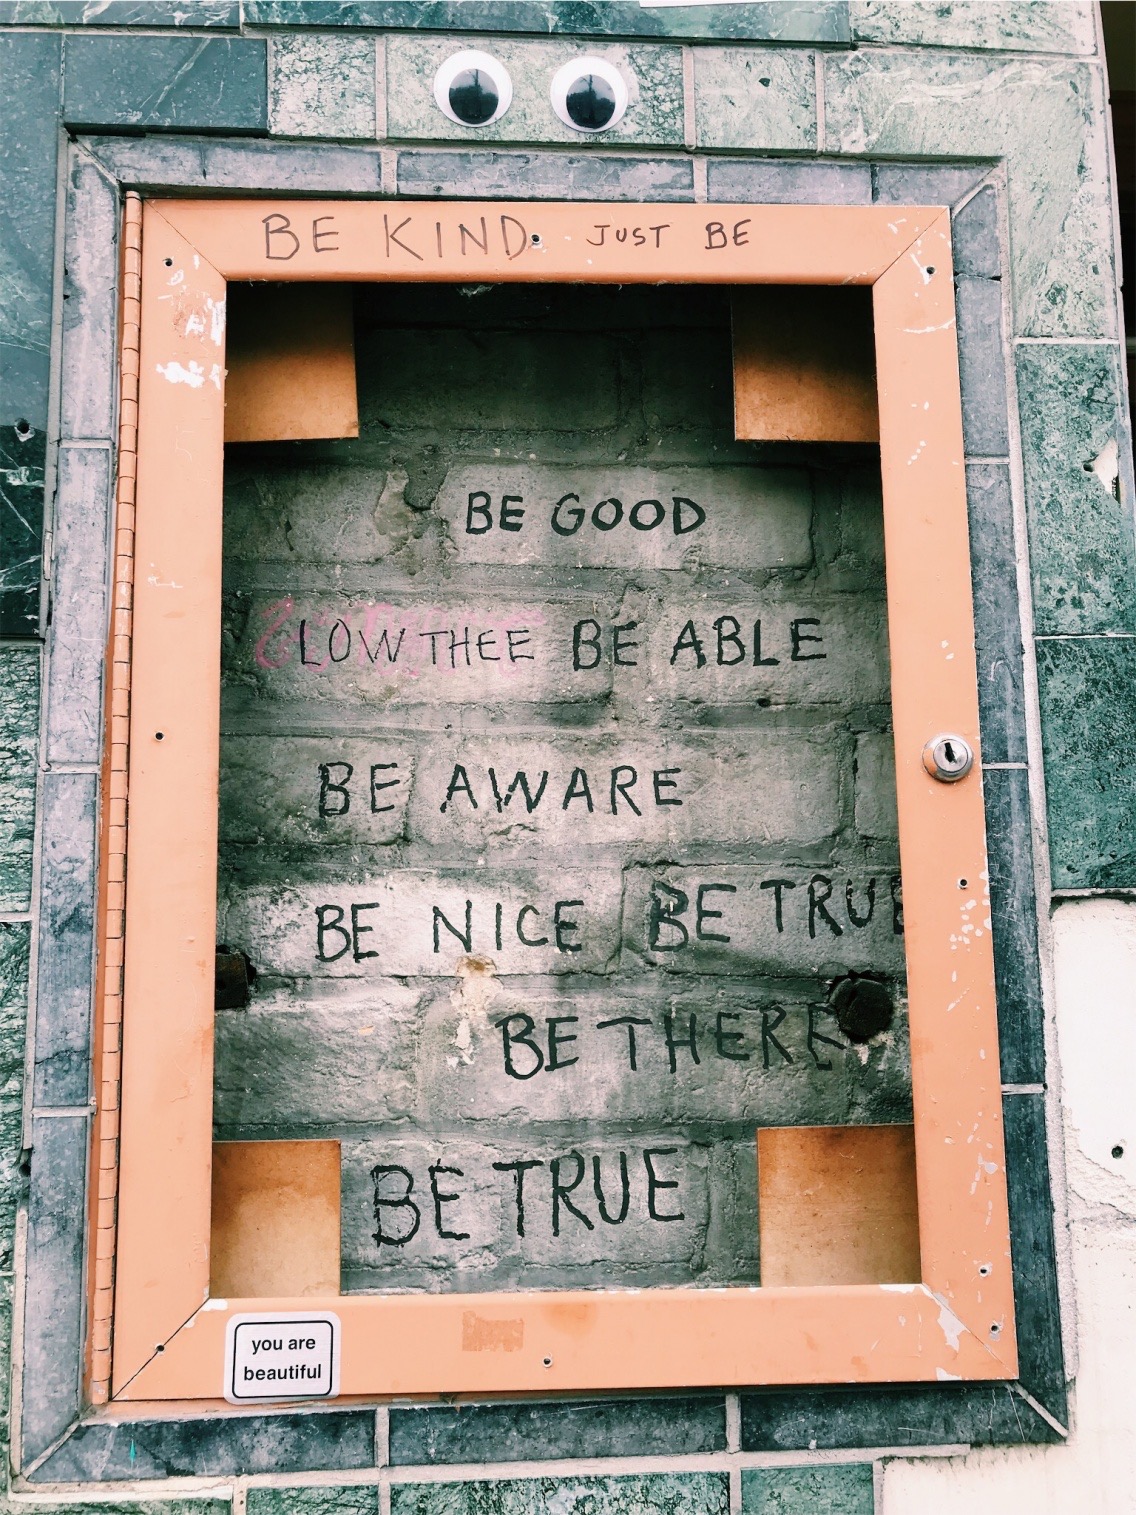 BE KIND JUST BE
BE GOOD
LOW THEE BE ABLE
BE AWARE
BE NICE BE TRUE
BE THERE
BE TRUE
you are
beautiful